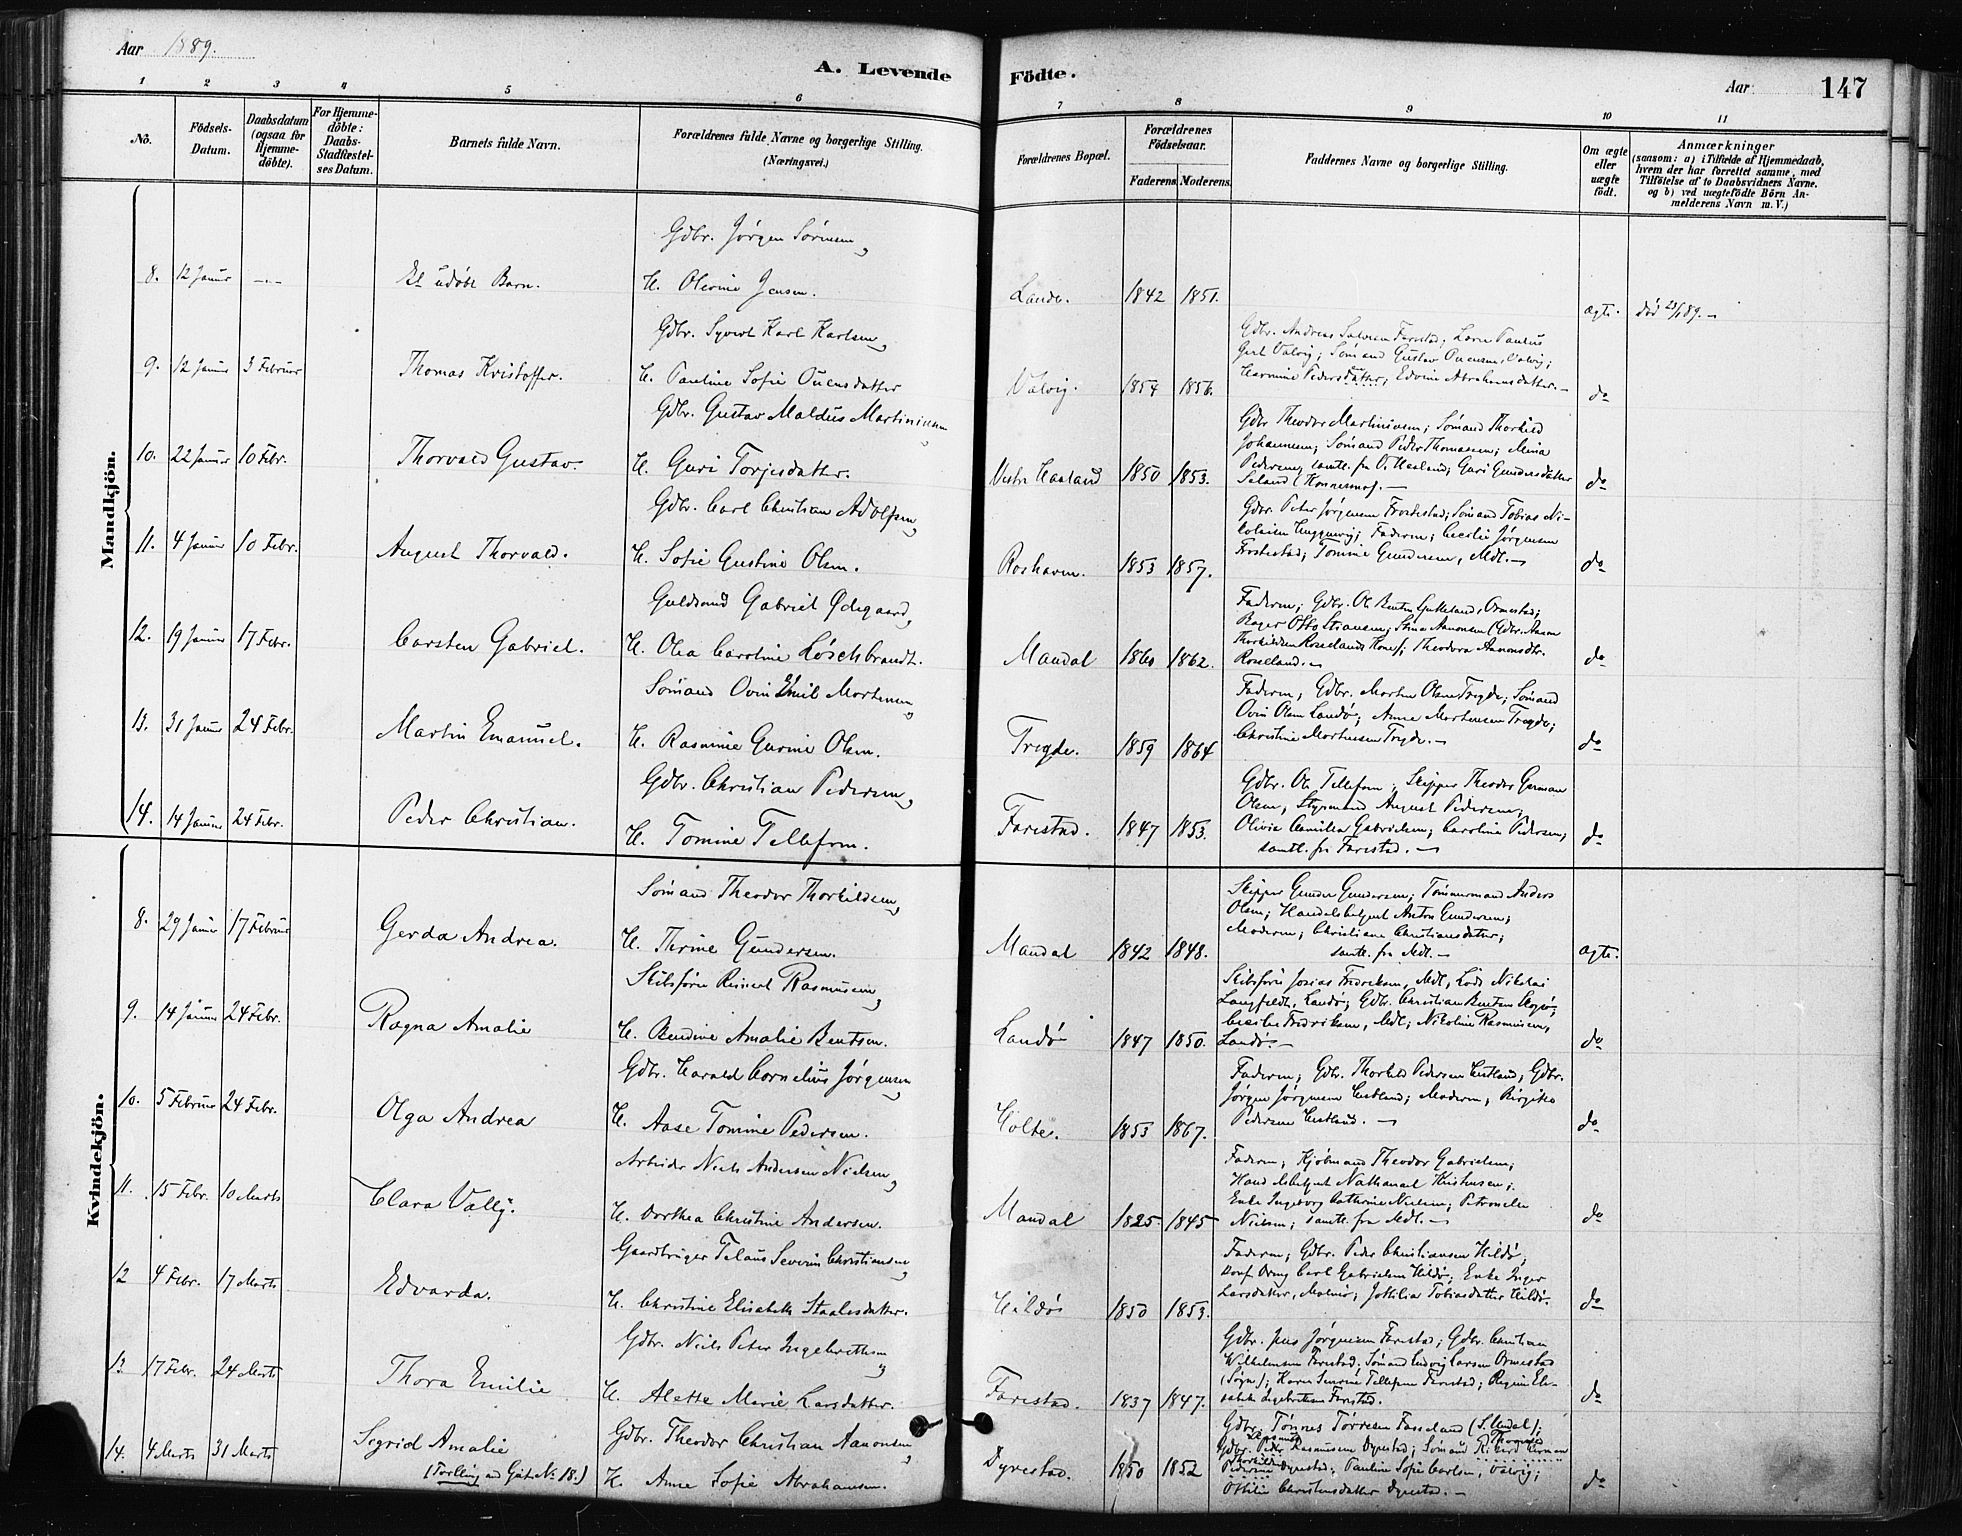 Aar 1889.
A. Levende Födte.
Aar
147
1 2 3 4 5 6 7 8 9 10 11
No.
Födsels-Datum.
Daabsdatum (ogsaa for Hjemme-döbte).
For Hjemme-döbte: Daabs-Stadfæstel-ses Datum.
Barnets fulde Navn.
Forældrenes fulde Navne og borgerlige Stilling. (Næringsvei.)
Forældrenes Bopæl.
Forældrenes Födselsaar.
Faderens. Moderens.
Faddernes Navne og borgerlige Stilling.
Om ægte eller uægte födt.
Anmærkninger
(saasom: a) i Tilfælde af Hjemmedaab,
hvem der har forrettet samme, med
Tilföielse af to Daabsvidners Navne.
og b) ved uægtefödte Börn An-
melderens Navn m. V.)
Mandkjön.
Gdbr. Jørgen Sörensen,
8. 12 Januar -"- Et udøbt Barn. H. Olevine Jensen. Landø. 1842 1851. ægte. død 23/1 89.-
Gdbr. Syvert Karl Karlsen,
Gdbr. Andreas Salvesen Farestad; Lars Paulus
Valvig; Sömand Gustav Ouensen, Valvig;
9. 12 Januar 3 Februar Thomas Kristoffer. H. Pauline Sofie Ouensdatter Valvig. 1854 1856. Hermine Pedersdatter; Edvine Abrahamsdatter.- do
Gdbr. Gustav Maldus Martiniusen
Gdbr Theodor Martiniusen; Sömand Thorkild
Johannesen; Sömand Peder Thomassen; Mina
10. 22 Januar 10 Febr. Thorvald Gustav. H. Guri Torjesdatter. Vestre Haaland 1850 1853. Pedersen, samtl. fra V. Haaland; Guri Gundersdatter do
Seland (Konnesmo).-
Gdbr. Carl Christian Adolfsen,
Gdbr. Peter Jørgensen; Sömand Tobias Ni-
colaisen; Faderen; Cecilie Jørgensen
11. 4 Januar 10 Febr. August Thorvald. H. Sofie Gustine Olsen. Roshavn. 1853 1857. Tomine Gundersen, Mdl.- do
Guldsmed Gabriel Ødegaard,
Faderen; Gdbr. Ole Bentsen, Ormestad;
Bager Otto Stiansen; Stine Aanonsen (Gdbr. Aanon
12. 19 Januar 17 Febr. Carsten Gabriel. H. Olea Caroline Löschbrandt. Mandal 1860 1862. Thorkildsen Rosselands Kone); Theodora Aanonsdtr. Rosseland.- do
Sömand Ovin Emil Mortensen,
Faderen; Gdbr. Morten Olsen Tregde; Sömand
Ovin Olsen Landö; Anna Mortensen Tregde;
13. 31 Januar 24 Febr. Martin Emanuel. H. Rasmine Gurine Olsen. Tregde. 1859 1864 Christine Mortensen Tregde.- do
Gdbr. Christian Pedersen,
Gdbr. Ole Tellefsen; Skipper Theodor German
Olsen; Styrmand August Pedersen;
14. 14 Januar 24 Febr. Peder Christian. H. Tomine Tellefsen. Farestad. 1847 1853. Olivia Camilla Gabrielsen; Caroline Pedersen; do
samtl. fra Farestad.-
Kvindekjön.
Sömand Theodor Thorkildsen,
Skipper Gunder Gundersen; Tömmermand Anders
Olsen; Handelsbetjent Anton Gundersen;
8. 29 Januar 17 Februar Gerda Andrea. H. Thrine Gundersen. Mandal 1842 1848. Moderen; Christiane Christiansdatter; samtl. fra Mdl.- ægte.
Skibsfører Reinert Rasmusen,
Skibsfører Josias Fredriksen, Mdl, Lods Nikolai
Langfeldt, Landø; Gdbr. Christian Bentsen;
9. 14 Januar 24 Febr. Ragna Amalie H. Bendine Amalie Bentsen. Landø 1847 1850. Cecilie Fredriksen, Mdl; Nikoline Rasmusen, Landø.- do
Gdbr. Harald Cornelius Jørgensen,
Faderen; Gdbr. Thorkild Pedersen; Gdbr.
Jørgen Jørgensen; Moderen; Birgitte
10. 5 Februar 24 Febr. Olga Andrea H. Aase Tomine Pedersen. Holte. 1853 1867. Pedersen.- do
Arbeider Niels Andersen Nielsen,
Faderen; Kjöbmand Theodor Gabrielsen;
Handelsbetjent Nathanael Kristensen;
Enke Ingeborg Cathrine Nielsen; Petronelle
11. 15 Febr. 10 Marts Clara Vally. H. Dorthea Christine Andersen. Mandal 1825. 1845 Nielsen; samtl. fra Mdl.- do
Gaardbruger Telaus Severin Christiansen,
Faderen; Gdbr. Peder Christiansen Hildö;
Carl Gabrielsen Hildö; Enke Inger
12 4 Febr. 17 Marts Edvarda. H. Christine Elisabeth Staalesdatter. Hildö 1850 1853. Larsdatter; Tobiasdatter Hildö. do
Gdbr. Niels Peter Ingebrethsen,
Gdbr. Jens Jørgensen Farestad; Gdbr. Christian
Wilhelmsen Farestad; Sömand Ludvig Larsen Ormestad
(Søgn); Karen Tellefsen Farestad;
13. 17 Febr. 24 Marts Thora Emilie H. Alette Marie Larsdatter. Farestad. 1837 1847. Farestad. do
Gdbr. Theodor Christian Aanonsen,
Gdbr. Tönnes Törresen Fasseland (S. Undal);
Gdbr. Peder Rasmusen Dyrestad; Sömand
14. 4 Marts 31 Marts Sigrid Amalie (Tvilling med Gut No 18.) H. Anne Sofie Abrahamsen. Dyrestad. 1850 1852 Dyrestad; Pauline Sofie Carlsen, Valvig; do
Ottilie Christensdatter Dyrestad.-